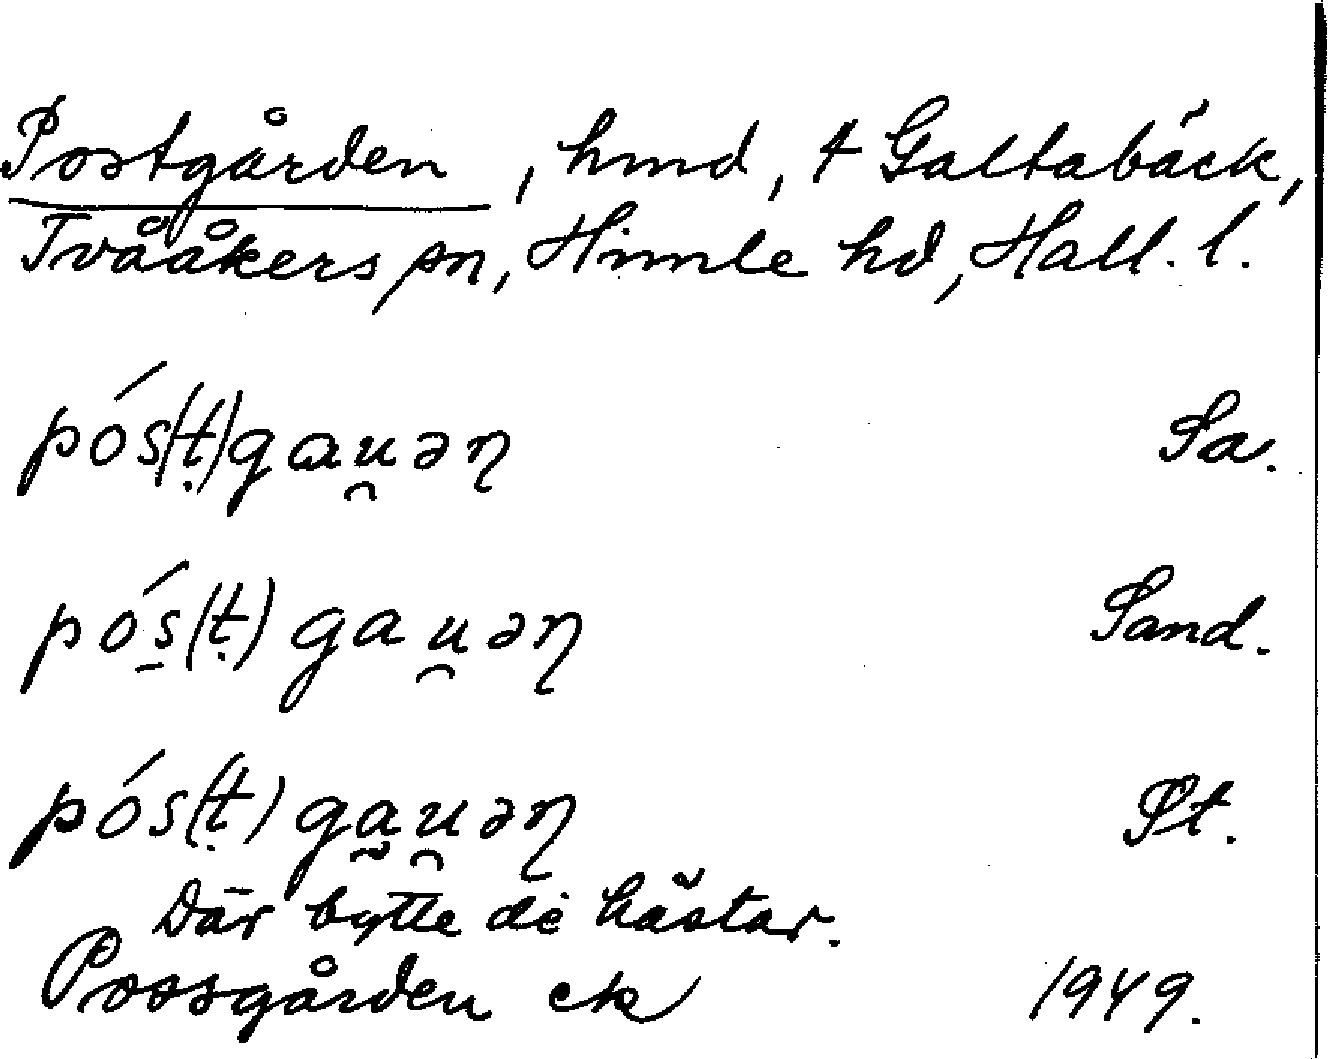 Postgården, hmd, t Galtabäck,
Tvååkers sn, Himle hd, Hall. l.
pós(t)gau̯əɳ Sa.
pós̠(t)gau̯əɳ Sand.
pós(t)ga̰u̯əɳ St.
Där bytte de hästar.
Possgården ek 1949.